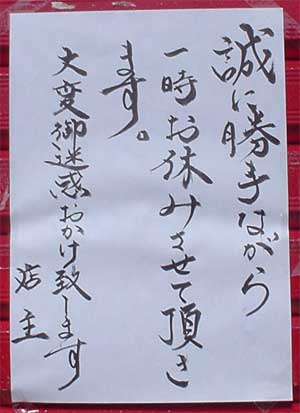 誠に勝手ながら
一時お休みさせて頂き
ます。
大変御迷惑おかけ致します
店主